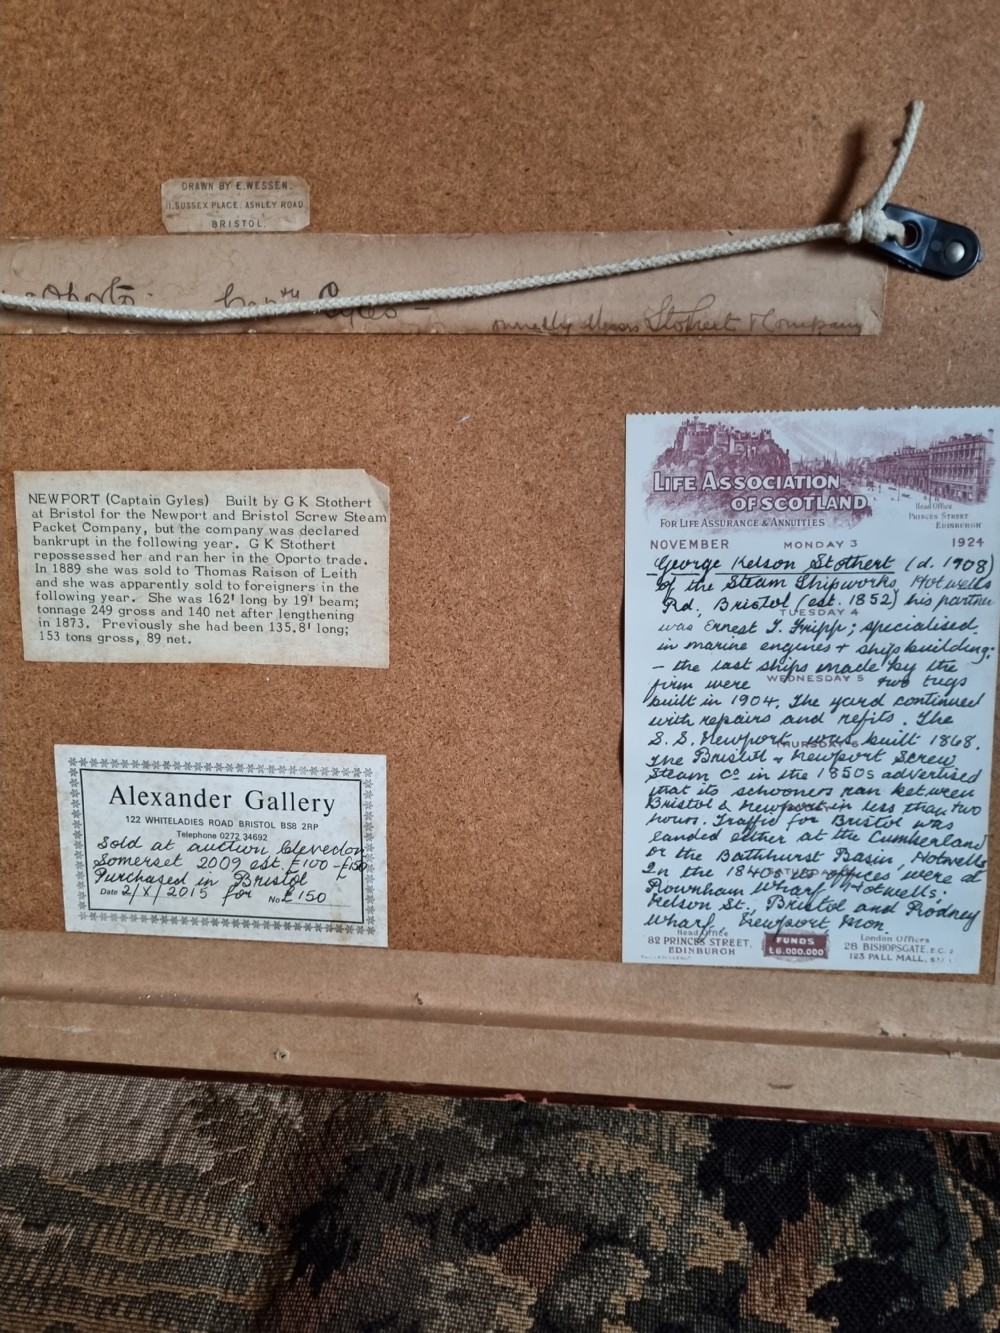 DRAWN BY E. WESSEN.
11, SUSSEX PLACE, ASHLEY ROAD
BRISTOL.
Oporto. Captn Gyles –
Messrs Stothert & Company
NEWPORT (Captain Gyles) Built by G K Stothert
at Bristol for the Newport and Bristol Screw Steam
Packet Company, but the company was declared
bankrupt in the following year. G K Stothert
repossessed her and ran her in the Oporto trade.
In 1889 she was sold to Thomas Raison of Leith
and she was apparently sold to foreigners in the
following year. She was 162' long by 19' beam;
tonnage 249 gross and 140 net after lengthening
in 1873. Previously she had been 135.8' long;
153 tons gross, 89 net.
Alexander Gallery
122 WHITELADIES ROAD BRISTOL BS8 2RP
Telephone 0272 34692
Sold at auction Clevedon
Somerset 2009 est. £100-£150
Purchased in Bristol
Date 2/X/2015 for No £150
LIFE ASSOCIATION
OF SCOTLAND
FOR LIFE ASSURANCE & ANNUITIES
Head Office
PRINCES STREET
EDINBURGH
NOVEMBER MONDAY 3 1924
George Kelson Stothert (d. 1908)
of the Steam Shipworks, Hotwells
Rd, Bristol (est. 1852) his partner
TUESDAY 4
was Ernest T. Fripp; specialised
in marine engines + shipbuilding:
– the last ships made by the
WEDNESDAY 5
firm were two tugs
built in 1904. The yard continued
with repairs and refits. The
S.S. Newport was built 1868.
THURSDAY 6
The Bristol & Newport Screw
Steam Co in the 1850s advertised
that its schooners ran between
Bristol & Newport in less than two
hours. Traffic for Bristol was
landed either at the Cumberland
or the Batthurst Basin, Hotwells
In the 1840s its offices were at
Rownham Wharf, Hotwells;
Nelson St., Bristol and Rodney
Wharf, Newport Mon.
Head Office
82 PRINCES STREET,
EDINBURGH
FUNDS
£6,000,000
London Offices
28 BISHOPSGATE, E.C. 2
123 PALL MALL, S.W. 1